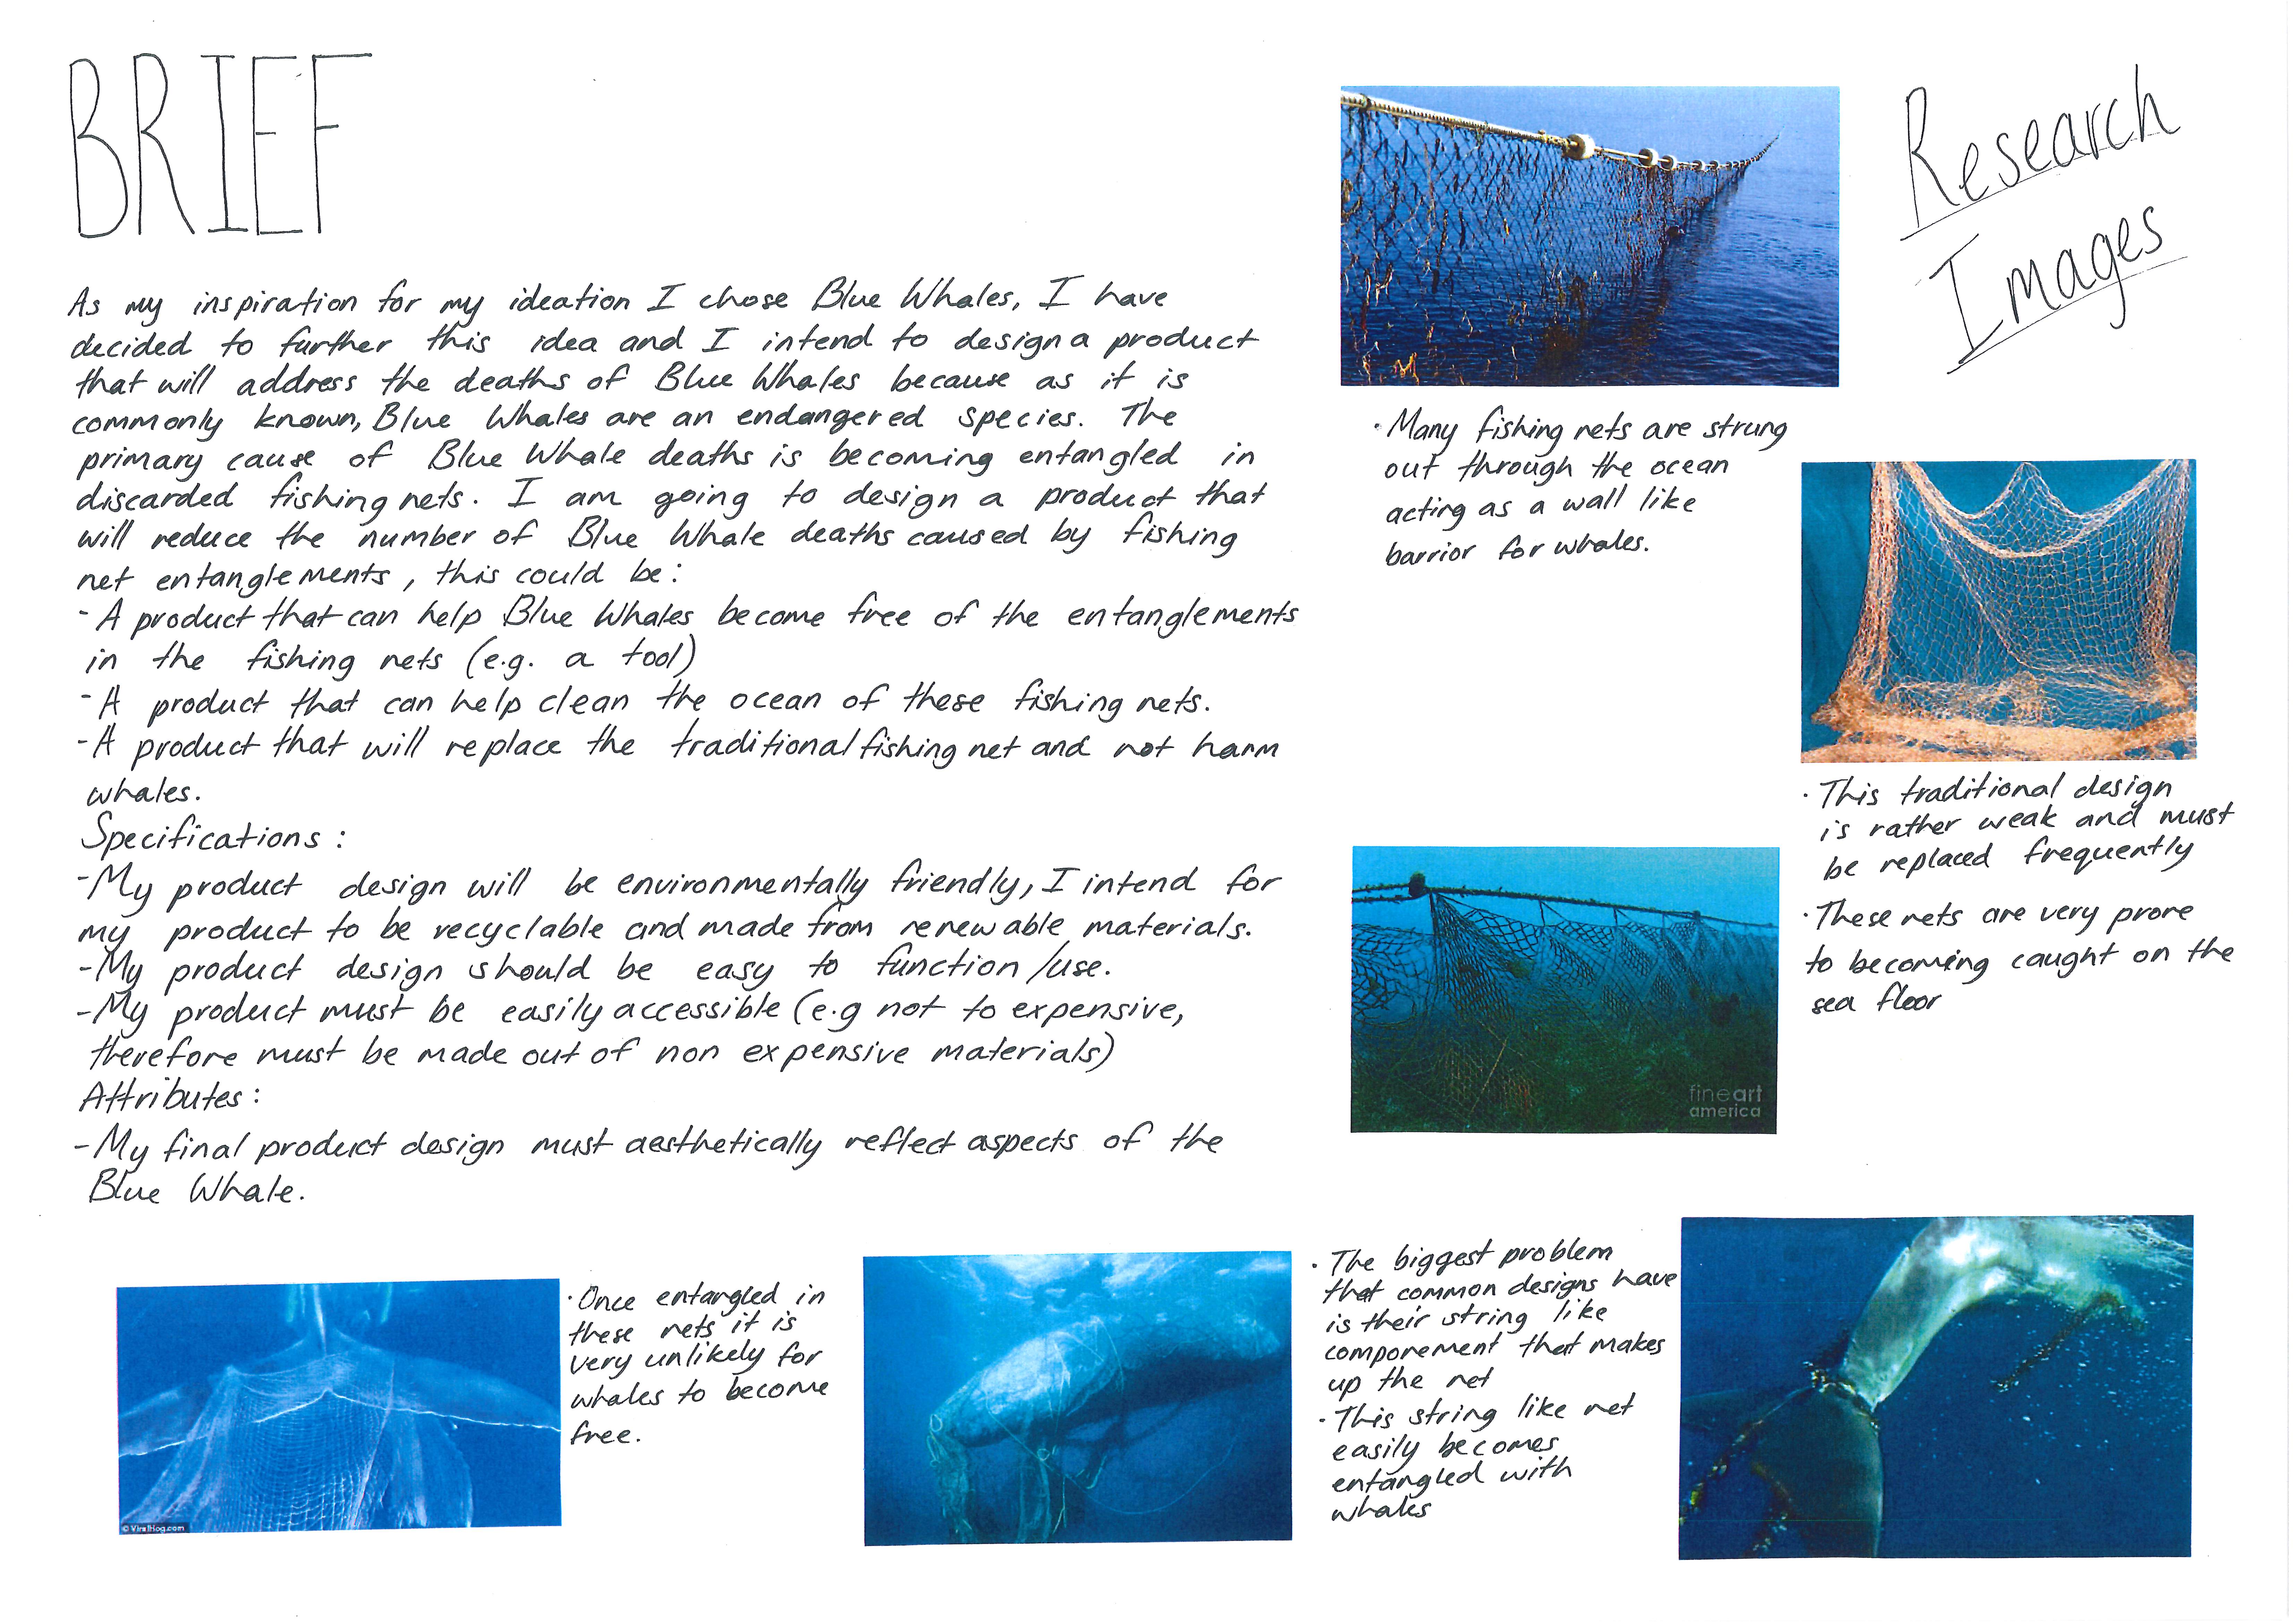 BRIEF
As my inspiration for my ideation I chose Blue Whales, I have
decided to further this idea and I intend to design a product
that will address the deaths of Blue Whales because as it is
commonly known, Blue Whales are an endangered species. The
primary cause of Blue Whale deaths is becoming entangled in
discarded fishing nets. I am going to design a product that
will reduce the number of Blue Whale deaths caused by fishing
net entanglements, this could be:
- A product that can help Blue Whales become free of the entanglements
in the fishing nets (e.g. a tool)
- A product that can help clean the ocean of these fishing nets.
- A product that will replace the traditional fishing net and not harm
whales.
Specifications:
- My product design will be environmentally friendly, I intend for
my product to be recyclable and made from renewable materials.
- My product design should be easy to function/use.
- My product must be easily accessible (e.g not to expensive,
therefore must be made out of non expensive materials)
Attributes:
- My final product design must aesthetically reflect aspects of the
Blue Whale.
Research
Images
· Many fishing nets are strung
out through the ocean
acting as a wall like
barrior for whales.
· This traditional design
is rather weak and must
be replaced frequently
· These nets are very prone
to becoming caught on the
sea floor
fineart
america
· Once entangled in
these nets it is
very unlikely for
whales to become
free.
© ViralHog.com
· The biggest problem
that common designs have
is their string like
componement that makes
up the net
· This string like net
easily becomes
entangled with
whales